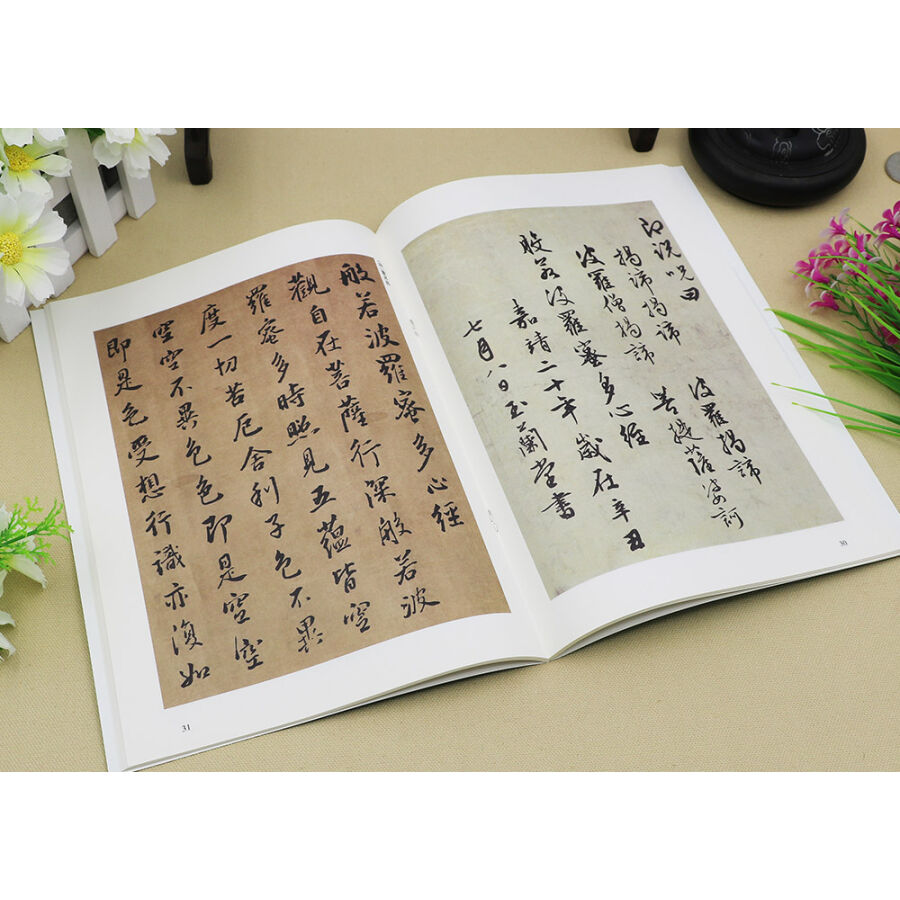 即說呪曰
揭諦揭諦 波羅揭諦
波羅僧揭諦 菩提薩婆訶
般若波羅蜜多心經
嘉靖二十年歲在辛丑
七月八日玉蘭堂書
30
般若波羅蜜多心經
觀自在菩薩行深般若波
羅蜜多時照見五蘊皆空
度一切苦厄舍利子色不異
空空不異色色即是空空
即是色受想行識亦復如
31